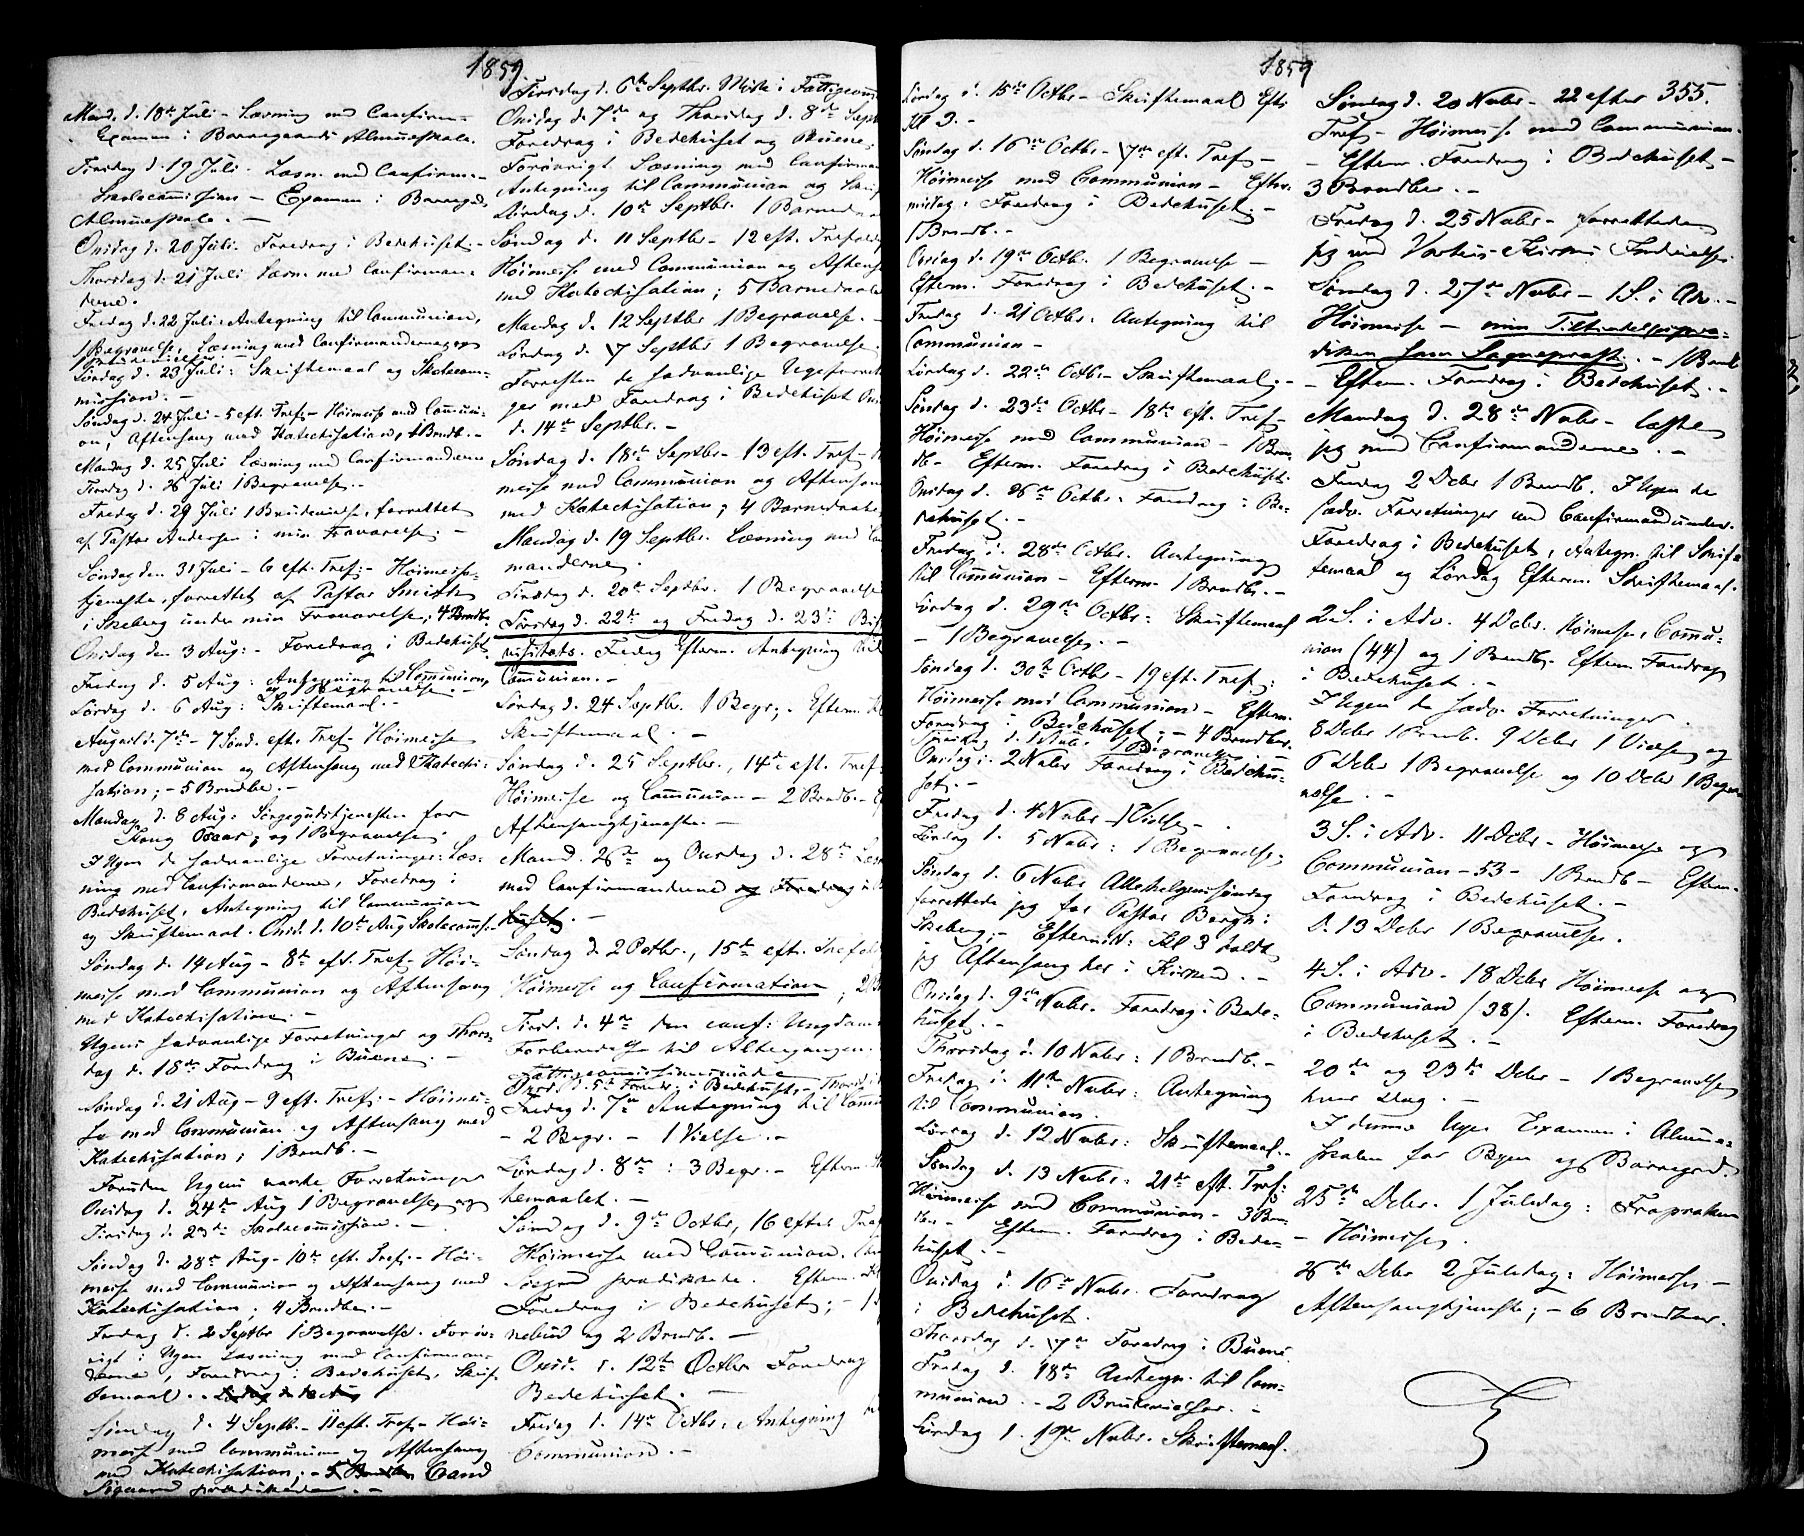 1859
Mand. d. 18de Juli - Læsning med Confirm-
Examen i Borregaards Almueskole.
Tirsdag d. 19 Juli. Læsn. med Confirm.-
Skolecommission - Examen i Borregds
Almueskole. -
Onsdag d. 20 Juli. Foredrag i Bedehuset. -
Thorsdag d. 21 Juli Læsn. med Confirman-
dene.
Fredag d. 22 Juli. Antegning til Communion,
1 Begravelse, Læsning med Confirmanderne og
1 Brudevielse. -
Lørdag d. 23 Juli: Skriftemaal og Skolecom-
mission. -
Søndag d. 24 Juli - 5 eft. Tref. - Høimesse med Commun-
on, Aftensang med Katechisation, 1 Brndb. -
Mandag d. 25 Juli Læsning med Confirmanderne
Tirsdag d. 26 Juli 1 Begravelse. -
Fredag d. 29 Juli 1 Brudevielse, forrettet
af Pastor Andersen i min Fraværelse. -
Søndag den 31 Juli - 6 eft. Tref. - Høimesse-
tjeneste, forrettet af Pastor Smith
i Skeberg under min Fraværelse; 4 Brndb.
Onsdag den 3 Aug: - Foredrag i Bedehuset.
Fredag d. 5 Aug: Antegning til Communion,
og 1 Begravelse. -
Lørdag d. 6 Aug: Skriftemaal. -
August d. 7de - 7 Sønd. eft. Tref - Høimesse
med Communion og Aftensang med Katechi-
sation; - 5 Brndbe. -
Mandag d. 8 Aug: Sørgegudstjenesten for
Kong Oscar; og 1 Begravelse.
I Ugen de sædvanlige Forretninger: Læs-
ning med Confirmanderne, Foredrag i
Bedehuset, Antegning til Communion
og Skriftemaal. Onsd. d. 10de Aug Skolecomms. -
Søndag d. 14 Aug - 8de eft. Tref - Høi-
messe med Communion og Aftensang
med Katechisation. -
Ugens sædvanlige Forretninger og Thors-
dag d. 18de Foredrag i Buene. -
Søndag d. 21 Aug - 9 eft. Tref: - Høimes-
se med Communion og Aftensang med
Katechisation; 1 Brndb. -
Foruden Ugens vante Forretninger
Onsdag d. 24de Aug 1 Begravelse, og
Tirsdag d. 23de Skolecommission. -
Søndag d. 28de Aug - 10de eft. Tref. - Høi-
messe med Communion og Aftensang med
Katechisation; 4 Brndbe. -
Fredag d. 2 Septbr 1 Begravelse. Forøv-
rigt i Ugen Læsning med Confirman-
derne, Foredrag i Bedehuset, Skrif-
temaal. -
Søndag d. 4 Septbr. - 11 eft. Tref - Høi-
messe med Communion og Aftensang
med Katechisation; - 5 Brndbe. Cand
Sigvard prædikede. -
Tirsdag d. 6te Septbr. Møde i Fattigcomm
Onsdag d. 7de og Thorsdag d. 8de Sept
Foredrag i Bedehuset og Buene,
Forøvrigt Læsning med Confirman
Antegning til Communion og Skrif
Lørdag d. 10de Septbr. 1 Barnedaa
Søndag d. 11 Septbr - 12 eft. Trefoldi
Høimesse med Communion og Aftens
med Katechisation; 5 Barnedaabe
Mandag d. 12 Septbr 1 Begravelse. -
Lørdag d. 17 Septbr 1 Begravelse.
Forresten de sædvanlige Ugeforret
ger med Foredrag i Bedehuset Ons
d. 14de Septbr. -
Søndag d. 18de Septbr - 13 eft. Tref - H
messe med Communion og Aftensan
med Katechisation; 4 Barnedaabe
Mandag d. 19 Septbr. Læsning med Con
manderne.
Tirsdag d. 20de Septbr. 1 Begravelse
Torsdag d. 22de og Fredag d. 23de Bis
visitats. Fredag Efterm. Antegning til
Communion. -
Lørdag d. 24 Septbr. 1 Begr.; Efterm. Kl
Skriftemaal. -
Søndag d. 25 Septbr., 14de eft. Tref-
Høimesse og Communion - 2 Brndb. - Ef
Aftensangtjeneste. -
Mand. 26de og Onsdag d. 28de Læs
med Confirmanderne og Foredrag i B
huset. -
Søndag d. 2 Octbr., 15de eft. Trefol
Høimesse og Confirmation; 2 B
Tirsd. d. 4de den conf: Ungdoms
Forberedelse til Altergangen.
Fattigcommissionsmøde
Onsd. d. 5te Foredr. i Bedehuset. - Thorsd.
Fredag d. 7de Antegning til Commu
- 2 Begr. - 1 Vielse. -
Lørdag d. 8de : 3 Begr. - Efterm. Sk
temaalet. -
Søndag d. 9de Octbr, 16 efter Tref
Høimesse med Communion. Can
Søgrd prædikede. Efterm. Kl
Foredrag i Bedehuset; - 1
nebud og 2 Brndb. -
Onsd. d. 12te Octbr Foredrag
Bedehuset. -
Fredag d. 14de Octbr. Antegning
Communion. -
1859
355.
Lørdag d. 15de Octbr - Skriftemaal Eftr
Kl 2. -
Søndag d. 16de Octbr - 17de eft. Tref -
Høimesse med Communion - Efter-
middag: Foredrag i Bedehuset. -
1 Brndb. -
Onsdag d. 19de Octbr. 1 Begravelse -
Efterm. Foredrag i Bedehuset. -
Fredag d. 21 Octbr. Antegning til
Communion -
Lørdag d. 22de Octbr - Skriftemaal. -
Søndag d. 23de Octbr - 18de eft. Tref -
Høimesse med Communion - 1 Brn-
db - Efterm. Foredrag i Bedehuset.
Onsdag d. 26de Octbr. Foredrag i Be-
dehuset. -
Fredag d. 28de Octbr. Antegning
til Communion - Efterm. 1 Brndb. -
Lørdag d. 29de Octbr: Skriftemaal
- 1 Begravelse. -
Søndag d. 30te Octbr - 19 eft. Tref;
Høimesse med Communion - Efterm.
Foredrag i Bedehuset; - 4 Brndber.
Tirsdag d. 1 Nvbr. 1 Begravelse
Onsdag d. 2 Nvbr Foredrag i Bedehu-
set. -
Fredag d. 4 Nvbr - 1 Vielse -
Lørdag d. 5 Nvbr: 1 Begravelse.
Søndag d. 6 Nvbr Allehelgenssøndag
forrettede jeg for Pastor Bergh i
Skeberg; - Eftermid: Kl 3 holdt
jeg Aftensang her i Kirken. -
Onsdag d. 9de Nvbr. Foredrag i Bede-
huset. -
Thorsdag d. 10 Nvbr: 1 Brndb. -
Fredag d. 11te Nvbr: Antegning
til Communion.
Lørdag d. 12 Nvbr: Skriftemaal. -
Søndag d. 13 Nvbr: 21de eft. Tref:
Høimesse med Communion - 3 Brn-
dbr - Efterm. Foredrag i Bede-
huset. -
Onsdag d. 16de Nvbr. Foredrag
i Bedehuset.
Thorsdag d. 17de Foredrag i Buene.
Fredag d. 18de Antegn. til Com-
munion. - 2 Brudevielser. -
Lørdag d. 19de Nvbr. Skriftemaal.
Søndag d. 20 Nvbr - 22 efter
Tref - Høimesse med Communion.
- Efterm. Foredrag i Bedehuset -
3 Brndber. -
Fredag d. 25 Nvbr - forrettede
jeg ved Varteig Kirkes Indvielse.
Søndag d. 27de Nvbr - 1 S. i Adv. -
Høimesse - min Tiltrædelsespræ-
diken som Sogneprest. - 1 Brndb
- Efterm. Foredrag i Bedehuset. -
Mandag d. 28de Nvbr - læste
jeg med Confirmanderne. -
Fredag 2 Dcbr 1 Brndb. I Ugen de
sædv. Forretninger med Confirmandunder.
Foredrag i Bedehuset, Antegn. til Skrif-
temaal og Lørdag Efterm. Skriftemaal.
2 S. i Adv. 4 Dcbr. Høimesse, Commu-
nion (44) og 1 Brndb. Efterm. Foredrag
i Bedehuset. -
I Ugen de sædv. Forretninger.
8 Dcbr 1 Brndb. 9 Dcbr 1 Vielse og
6 Dcbr 1 Begravelse og 10 Dcbr 1 Begra-
velse. -
3 S. i Adv. 11 Dcbr - Høimesse og
Communion - 53 - 1 Brndb - Efterm.
Foredrag i Bedehuset. -
D. 13 Dcbr 1 Begravelse.
4 S. i Adv. 18 Dcbr Høimesse og
Communion /38/. Efterm. Foredrag
i Bedehuset. -
20de og 23de Dcbr - 1 Begravelse
hver Dag. -
I denne Uge Examen i Almue-
skolen for Byen og Borregrd.
25de Dcbr. 1 Juledag: Fropræken
- Høimesse.
26de Dcbr 2 Juledag: Høimesse -
Aftensangtjeneste; - 6 Brndber.